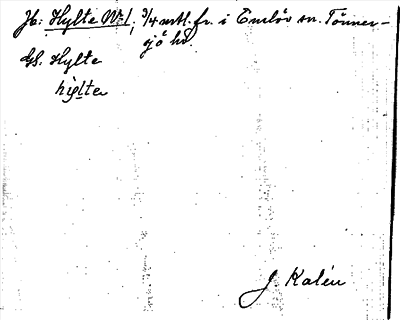 Jb: Hylte No 1, 3/4 mtl. fr. i Enslöv sn. Tönner-
jö hd.
Gs. Hylte
hỳlte
J. Kalén